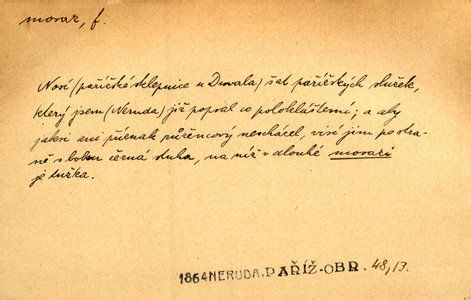 mosaz, f.
Nosí (pařížské sklepnice u Duvala) šat pařížských služek,
který jsem (Neruda) již popsal co poloklášterní; a aby
jaksi ani přívěsek růžencový nescházel, visí jim po stra-
ně s boku černá stuha, na níž v dlouhé mosazi
je tužka.
1864 NERUDA, PAŘÍŽ-OBR. 48,13.